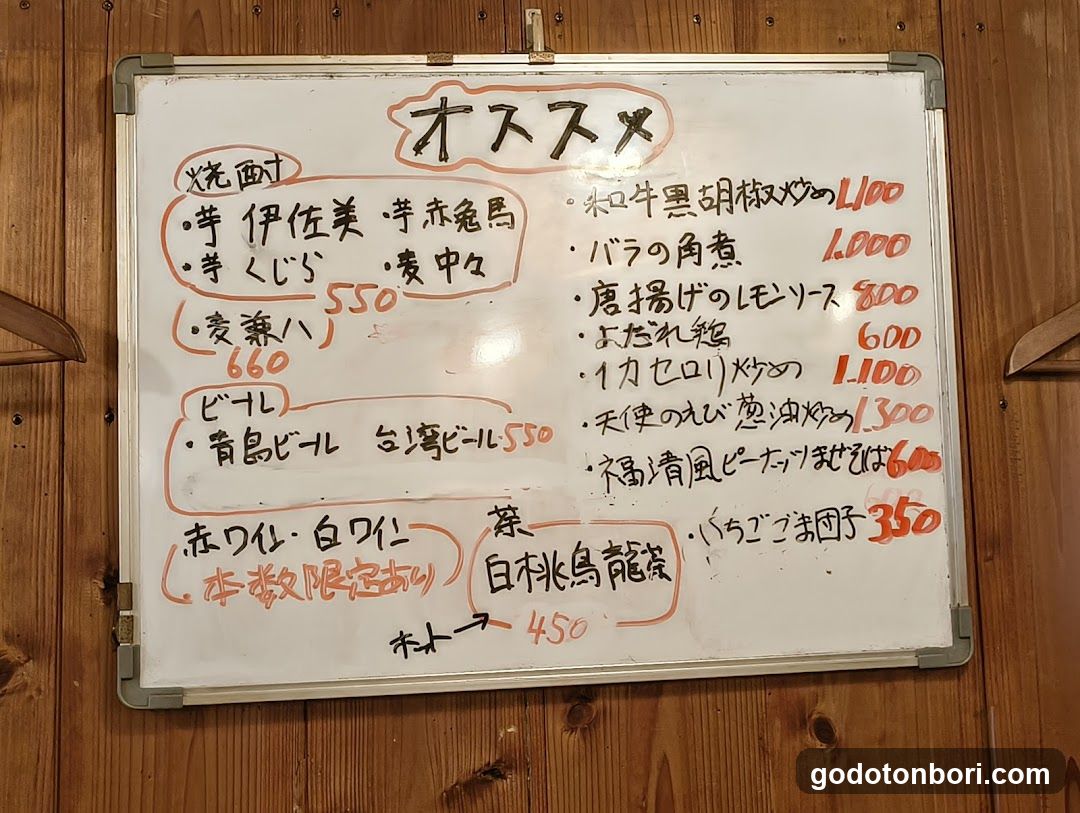 オススメ
焼酎
・芋 伊佐美 ・芋 赤兎馬
・芋 くじら ・麦 中々
550
・麦 兼八
660
ビール
・青島ビール 台湾ビール 550
赤ワイン・白ワイン
・本数限定あり
茶
白桃烏龍茶
ホット→ 450
・和牛黒胡椒炒め 1.100
・バラの角煮 1.000
・唐揚げのレモンソース 800
・よだれ鶏 600
・イカセロリ炒め 1.100
・天使のえび葱油炒め 1.300
・福清風ピーナッツまぜそば 600
・いちごごま団子 350
godotonbori.com